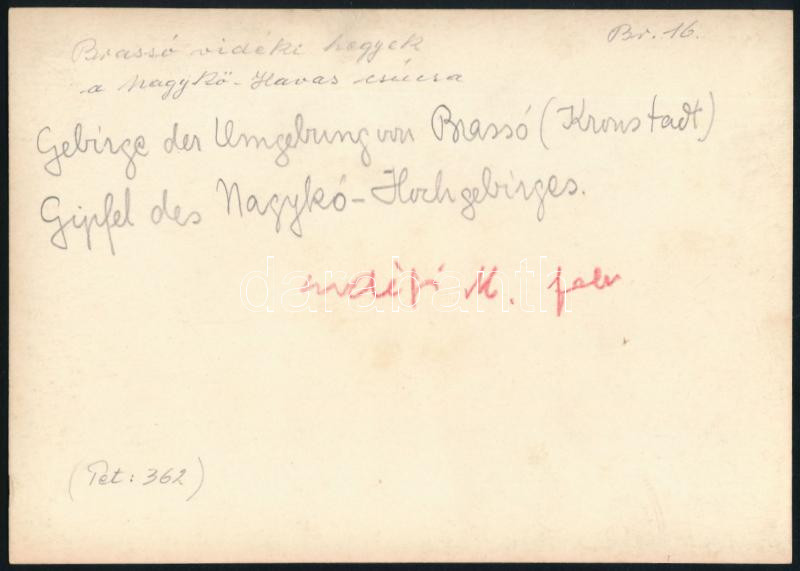 Br. 16.
Brassó vidéki hegyek
a Nagykő-Havas csúcsa
Gebirge der Umgebung von Brassó (Kronstadt)
Gipfel des Nagykő-Hochgebirges.
M. felv
darabanth
(Tet: 362)